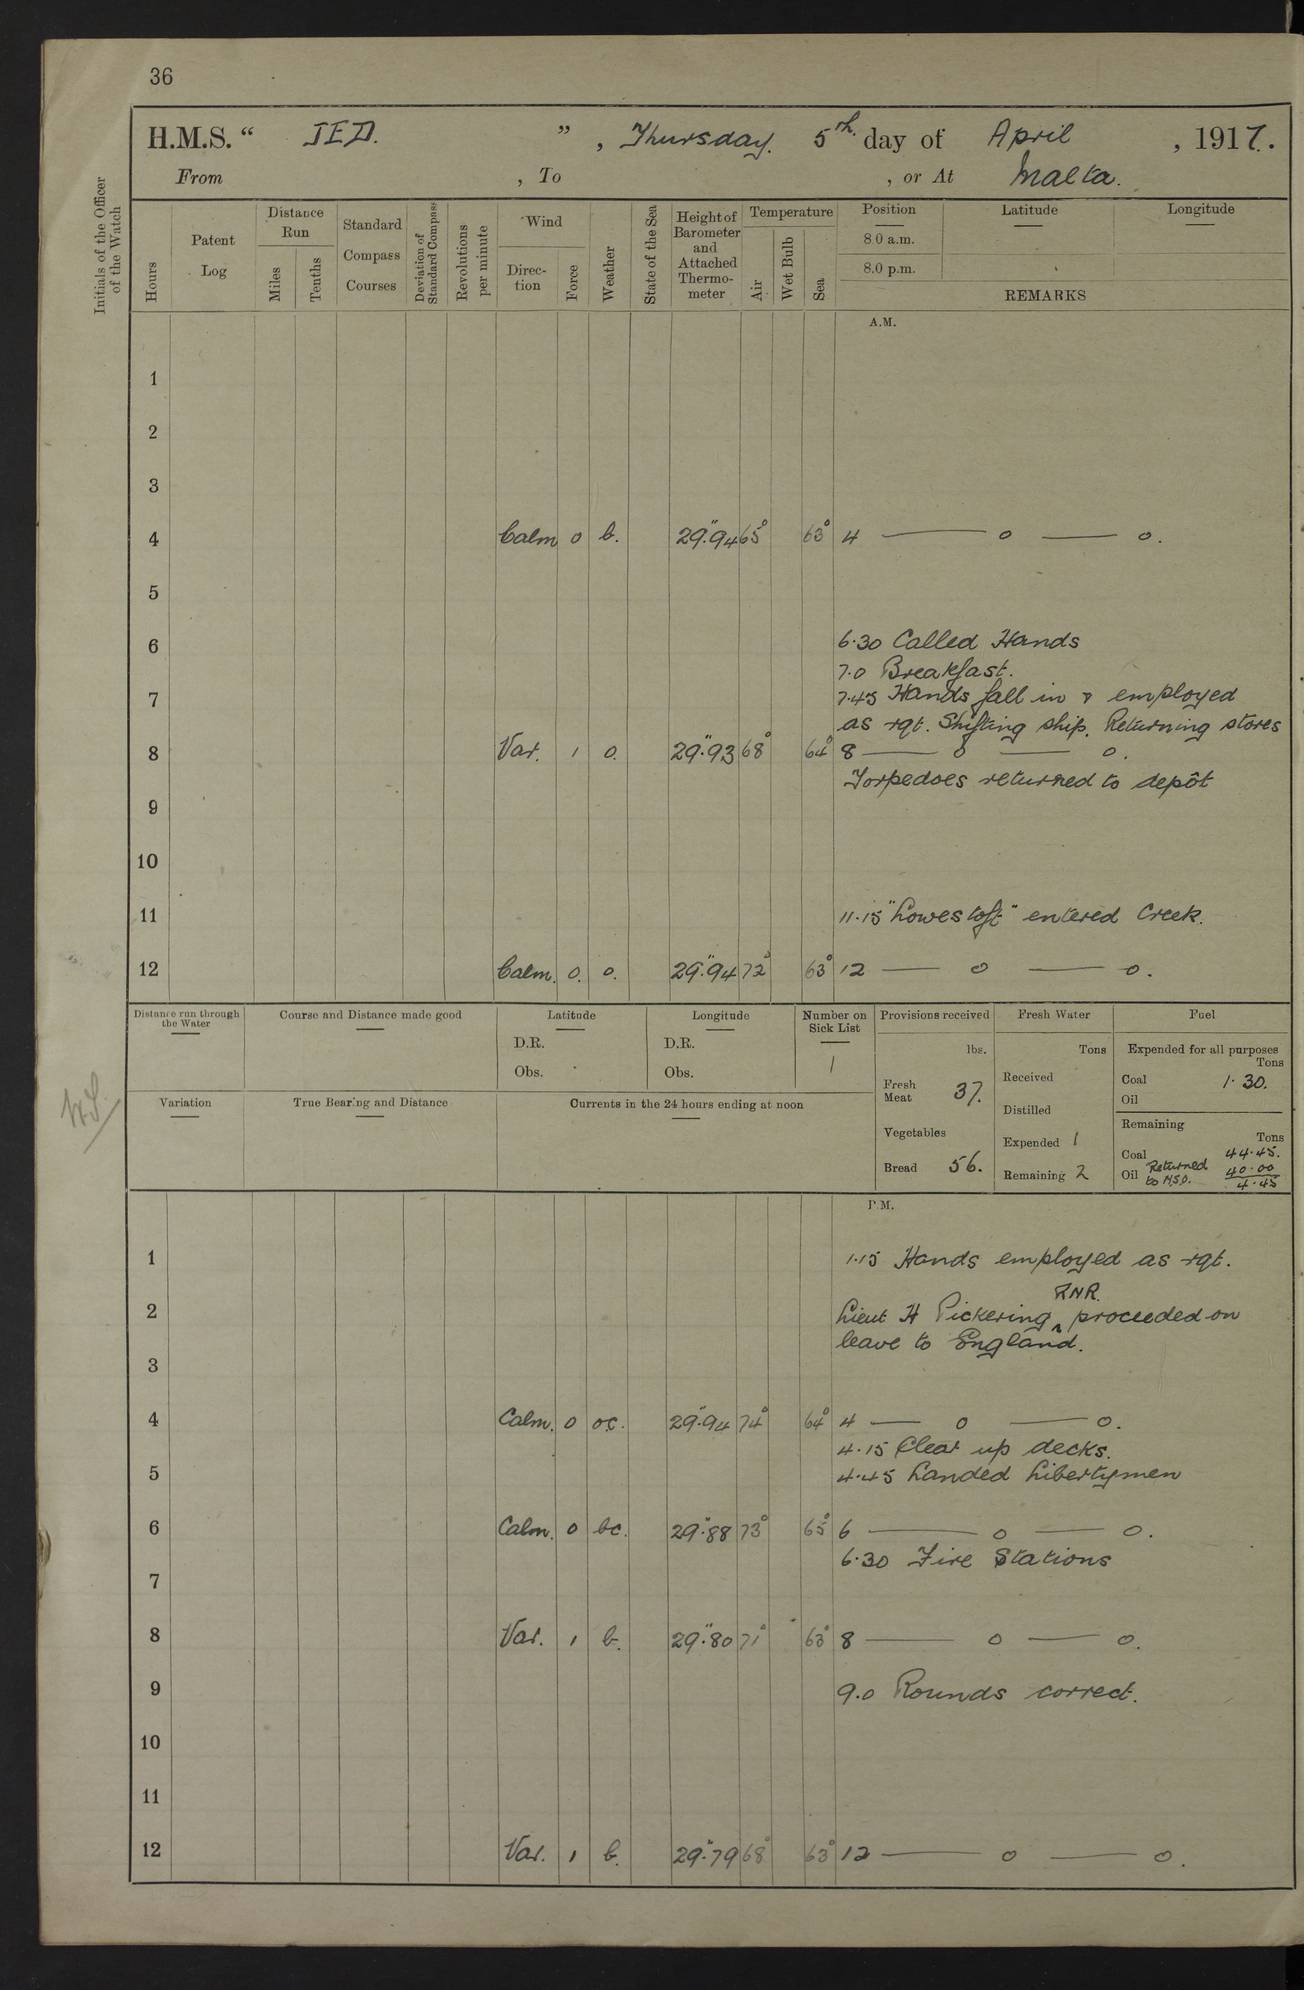 36
H.M.S. " JED. " , Thursday. 5th. day of April , 1917.
From , To , or At Malta.
Initials of the Officer of the Watch
Hours
Patent Log
Distance Run
Miles
Tenths
Standard Compass Courses
Deviation of Standard Compass
Revolutions per minute
Wind
Direction
Force
Weather
State of the Sea
Height of Barometer and Attached Thermometer
Temperature
Air
Wet Bulb
Sea
Position Latitude Longitude
8.0 a.m.
8.0 p.m.
REMARKS
A.M.
1
2
3
4 Calm 0 b. 29".94 65° 63° 4 — o — o.
5
6 6.30 Called Hands
7.0 Breakfast.
7 7.45 Hands fall in & employed
as rqt. Shifting ship. Returning stores
8 Var. 1 o. 29".93 68° 64° 8 — o — o.
Torpedoes returned to depôt
9
10
11 11.15 "Lowestoft" entered Creek.
12 Calm. 0. o. 29".94 72° 63° 12 — o — o.
Distance run through the Water
Course and Distance made good
Latitude
D.R.
Obs.
Longitude
D.R.
Obs.
Number on Sick List
1
Provisions received
lbs.
Fresh Meat 37.
Vegetables
Bread 56.
Fresh Water
Tons
Received
Distilled
Expended 1
Remaining 2
Fuel
Expended for all purposes
Tons
Coal 1.30.
Oil
Remaining
Tons
Coal 44.45.
Oil Returned to N.S.O. 40.00
4.45
Variation
True Bearing and Distance
Currents in the 24 hours ending at noon
P.M.
1 1.15 Hands employed as rqt.
RNR.
2 Lieut H Pickering ^ proceeded on
leave to England.
3
4 Calm. 0 oc. 29".94 74° 64° 4 — o — o.
4.15 Clear up decks.
5 4.45 Landed Libertymen
6 Calm. 0 bc. 29".88 73° 65° 6 — o — o.
6.30 Fire Stations
7
8 Var. 1 b. 29".80 71° 63° 8 — o — o.
9 9.0 Rounds correct.
10
11
12 Var. 1 b. 29".79 68° 63° 12 — o — o.